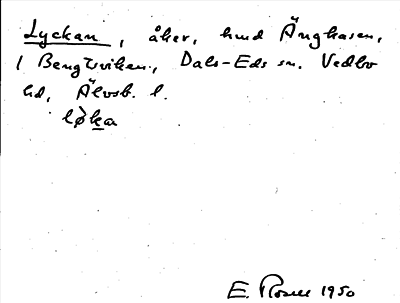 Lyckan, åker, hmd Änghasen,
1 Bengtsviken, Dals-Eds sn. Vedbo
hd, Älvsb. l.
E. Rosell 1950